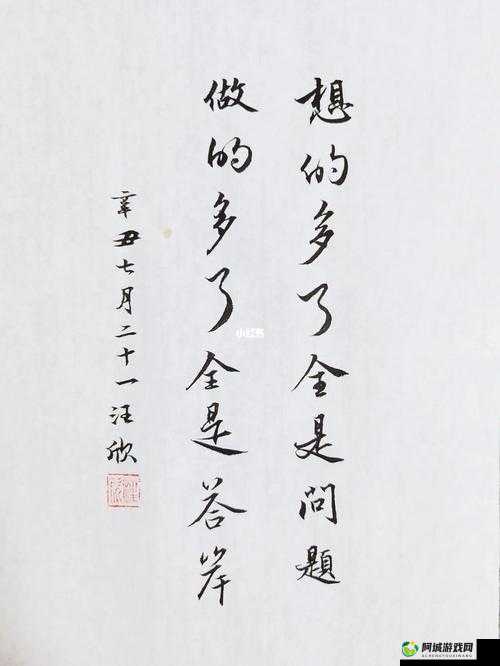 想的多了全是問題
做的多了全是答案
辛丑七月二十一汪欣
小红书
阿城游戏网
ACHENGYOUXIWANG